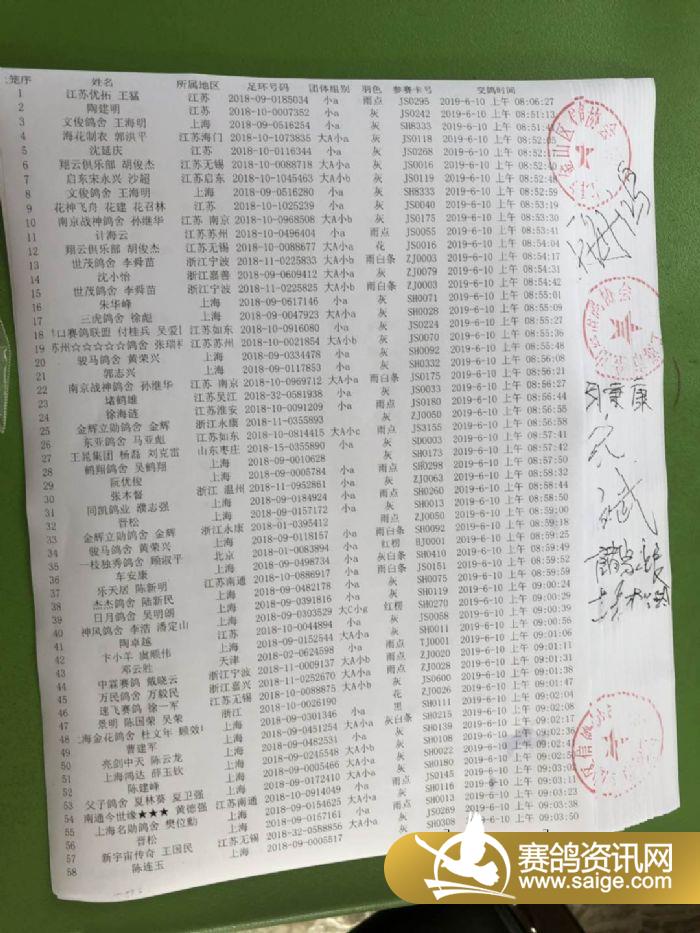 笼序 姓名 所属地区 足环号码 团体组别 羽色 参赛卡号 交鸽时间
1 江苏优拓 王猛 江苏 2018-09-0185034 小a 雨点 JS0295 2019-6-10 上午 08:06:27
2 陶建明 江苏 2018-10-0007352 小a 灰 JS0242 2019-6-10 上午 08:51:13
3 文俊鸽舍 王海明 上海 2018-09-0516254 小a 灰 SH8333 2019-6-10 上午 08:51:4
4 海花制衣 郭洪平 江苏海门 2018-10-1073835 大A小a 灰 JS0118 2019-6-10 上午 08:52:05
5 沈延庆 江苏 2018-10-0116344 小a 灰 JS0268 2019-6-10 上午
6 翔云俱乐部 胡俊杰 江苏无锡 2018-10-0088718 大A小a 灰 JS0016 2019-6-10 上午 08:52:40
7 启东宋永兴 沙超 江苏启东 2018-10-1045463 大A小b 灰 JS0119 2019-6-10 上午 08:52:4
8 文俊鸽舍 王海明 上海 2018-09-0516280 小a 灰 SH8333 2019-6-10 上午 08:52:59
9 花神飞舟 花建 花召林 江苏 2018-10-1025239 小a 灰 JS0040 2019-6-10 上午 08:53:19
10 南京战神鸽舍 孙继华 江苏 南京 2018-10-0968508 大A小b 灰 JS0175 2019-6-10 上午 08:53:30
11 计海云 江苏苏州 2018-10-0496404 小a 雨点 JS0055 2019-6-10 上午 08:54:01
12 翔云俱乐部 胡俊杰 江苏无锡 2018-10-0088677 大A小a 花 JS0016 2019-6-10 上午 08:54:04
13 世茂鸽舍 李舜苗 浙江宁波 2018-11-0225833 大A小b 雨白条 ZJ0003 2019-6-10 上午 08:54:17
14 沈小怡 浙江嘉善 2018-09-0609412 大A小a 灰 ZJ0079 2019-6-10 上午 08:54:31
15 世茂鸽舍 李舜苗 浙江宁波 2018-11-0225825 大A小b 雨白条 ZJ0003 2019-6-10 上午 08:54:42
16 朱华峰 上海 2018-09-0617146 小a 灰 SH0071 2019-6-10 上午 08:55:01
17 三虎鸽舍 徐彪 上海 2018-09-0047923 大A小a 灰 SH0028 2019-6-10 上午 08:55:09
18 口赛鸽联盟 付桂兵 吴爱 江苏如东 2018-10-0916080 小a 灰 JS0224 2019-6-10 上午 08:55:27
19 苏州☆☆☆☆☆鸽舍 张瑞祥 江苏苏州 2018-10-0021854 大A小b 灰 JS0070 2019-6-10 上午 08:55:36
20 骏马鸽舍 黄荣兴 上海 2018-09-0334478 小a 灰 SH0092 2019-6-10 上午 08:55:48
21 郭志兴 上海 2018-09-0117853 小a 灰 SH0332 2019-6-10 上午 08:56:08
22 南京战神鸽舍 孙继华 江苏 南京 2018-10-0969712 大A小a 雨白条 JS0175 2019-6-10 上午 08:56:21
23 堵鹤雄 江苏吴江 2018-32-0581938 小a 灰 JS0033 2019-6-10 上午 08:56:31
24 徐海涟 江苏淮安 2018-10-0091209 小a 雨点 JS0180 2019-6-10 上午 08:56:44
25 金辉立勋鸽舍 金辉 浙江永康 2018-11-0355893 灰 ZJ0050 2019-6-10 上午
26 东亚鸽舍 马亚彪 江苏如东 2018-10-0814415 大A小c 雨点 JS3155 2019-6-10 上午 08:57:08
27 王昆集团 杨磊 刘克雷 山东枣庄 2018-15-0355890 小a 灰 SD0003 2019-6-10 上午 08:57:41
28 鹤翔鸽舍 吴鹤翔 上海 2018-09-0010628 灰 SH0173 2019-6-10 上午 08:57:42
29 阮优俊 上海 2018-09-0005784 小a 雨点 SH0298 2019-6-10 上午 08:57:50
30 张本督 浙江 温州 2018-11-0952861 小a 灰 ZJ0063 2019-6-10 上午 08:58:32
31 同凯鸽业 濮志强 上海 2018-09-0184924 小a 雨点 SH0260 2019-6-10 上午 08:58:50
32 晋松 上海 2018-09-0157172 小a 灰 SH0013 2019-6-10 上午 08:58:54
33 金辉立勋鸽舍 金辉 浙江永康 2018-01-0395412 雨点 ZJ0050 2019-6-10 上午 08:59:00
34 骏马鸽舍 黄荣兴 上海 2018-09-0118157 小a 雨白条 SH0092 2019-6-10 上午 08:59:18
35 一枝独秀鸽舍 顾淑平 北京 2018-01-0083894 小a 红楞 BJ0001 2019-6-10 上午 08:59:25
36 车安康 上海 2018-09-0498734 小a 灰白条 SH0410 2019-6-10 上午 08:59:49
37 乐天居 陈新明 江苏南通 2018-10-0886917 小a 雨白条 JS0151 2019-6-10 上午 08:59:52
38 杰杰鸽舍 陆新民 上海 2018-09-0482179 小a 灰 SH0075 2019-6-10 上午 08:59:59
39 日月鸽舍 吴明朗 上海 2018-09-0391816 小a 灰 SH0119 2019-6-10 上午 09:00:24
40 神风鸽舍 李浩 潘定山 上海 2018-09-0303529 大C小g 红楞 SH0270 2019-6-10 上午 09:00:39
41 陶卓越 江苏 2018-10-0044894 小a 灰 JS0058 2019-6-10 上午 09:00:49
42 卞小羊 虞顺伟 上海 2018-09-0152544 大A小a 灰 SH0011 2019-6-10 上午 09:00:56
43 邓云胜 天津 2018-02-0624598 小a 雨点 TJ0001 2019-6-10 上午 09:01:06
44 中霖赛鸽 戴晓云 浙江宁波 2018-11-0009137 大A小b 雨点 ZJ0020 2019-6-10 上午 09:01:11
45 万民鸽舍 万毅民 浙江嘉兴 2018-11-0252670 大A小a 雨点 ZJ0028 2019-6-10 上午 09:01:31
46 速飞赛鸽 徐一军 江苏无锡 2018-10-0088875 大A小b 灰 JS0600 2019-6-10 上午 09:01:38
47 景明 陈国荣 吴荣 浙江 2018-10-0026190 小a 花 ZJ0026 2019-6-10 上午 09:01:47
48 上海金花鸽舍 杜文年 顾效 上海 2018-09-0301346 小a 黑 SH0111 2019-6-10 上午
49 曹建军 上海 2018-09-0451254 大A小a 灰白条 SH0215 2019-6-10 上午 09:02:08
50 亮剑中天 陈云龙 上海 2018-09-0482531 小a 灰 SH0139 2019-6-10 上午 09:02:17
51 上海鸿达 薛玉钦 上海 2018-09-0245548 大A小b 灰 SH0108 2019-6-10 上午 09:02:36
52 陈建峰 上海 2018-09-0005466 大A小a 灰 SH0022 2019-6-10 上午 09:02:41
53 父子鸽舍 夏林葵 夏卫强 上海 2018-09-0172410 大A小a 灰 SH0180 2019-6-10 上午 09:02:47
54 南通今世缘★★★ 黄德强 江苏南通 2018-10-0914049 小a 灰 JS0145 2019-6-10 上午
55 上海名勋鸽舍 樊位勤 上海 2018-09-0154625 大A小a 雨点 SH0116 2019-6-10 上午 09:03:11
56 晋松 上海 2018-09-0167161 小a 灰 SH0013 2019-6-10 上午 09:03:24
57 新宇宙传奇 王国民 江苏无锡 2018-32-0588856 大A小a 灰 JS0269 2019-6-10 上午 09:03:38
58 陈连玉 上海 2018-09-0005517 SH0308 2019-6-10 上午 09:03:50
赛鸽资讯网
www.saige.com